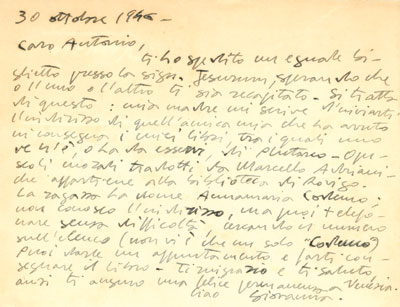 30 ottobre 1946 –
Caro Antonio,
ti ho spedito un eguale bi-
glietto presso la sign. Jesurum, sperando che
o l'uno o l'altro ti sia recapitato. Si tratta
di questo: mia madre mi scrive d'inviarti
l'indirizzo di quell'amica mia che ha avuto
in consegna i miei libri, tra i quali uno
ve n'è, o ha da esservi, di Plutarco – Opu-
scoli morali tradotti da Marcello Adriani –
che appartiene alla biblioteca di Rovigo.
La ragazza ha nome Annamaria
non conosco l'indirizzo, ma puoi telefo-
nare senza difficoltà, cercando il numero
sull'elenco (non vi è che un solo
Puoi darle un appuntamento e farti con-
segnare il libro – Ti ringrazio e ti saluto,
anzi ti auguro una felice permanenza a Venezia.
Ciao Giovanna.